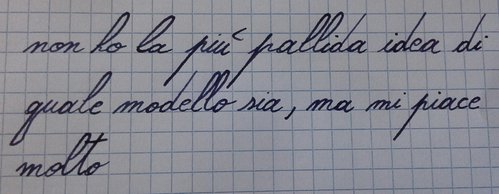 non ho la più pallida idea di
quale modello sia, ma mi piace
molto